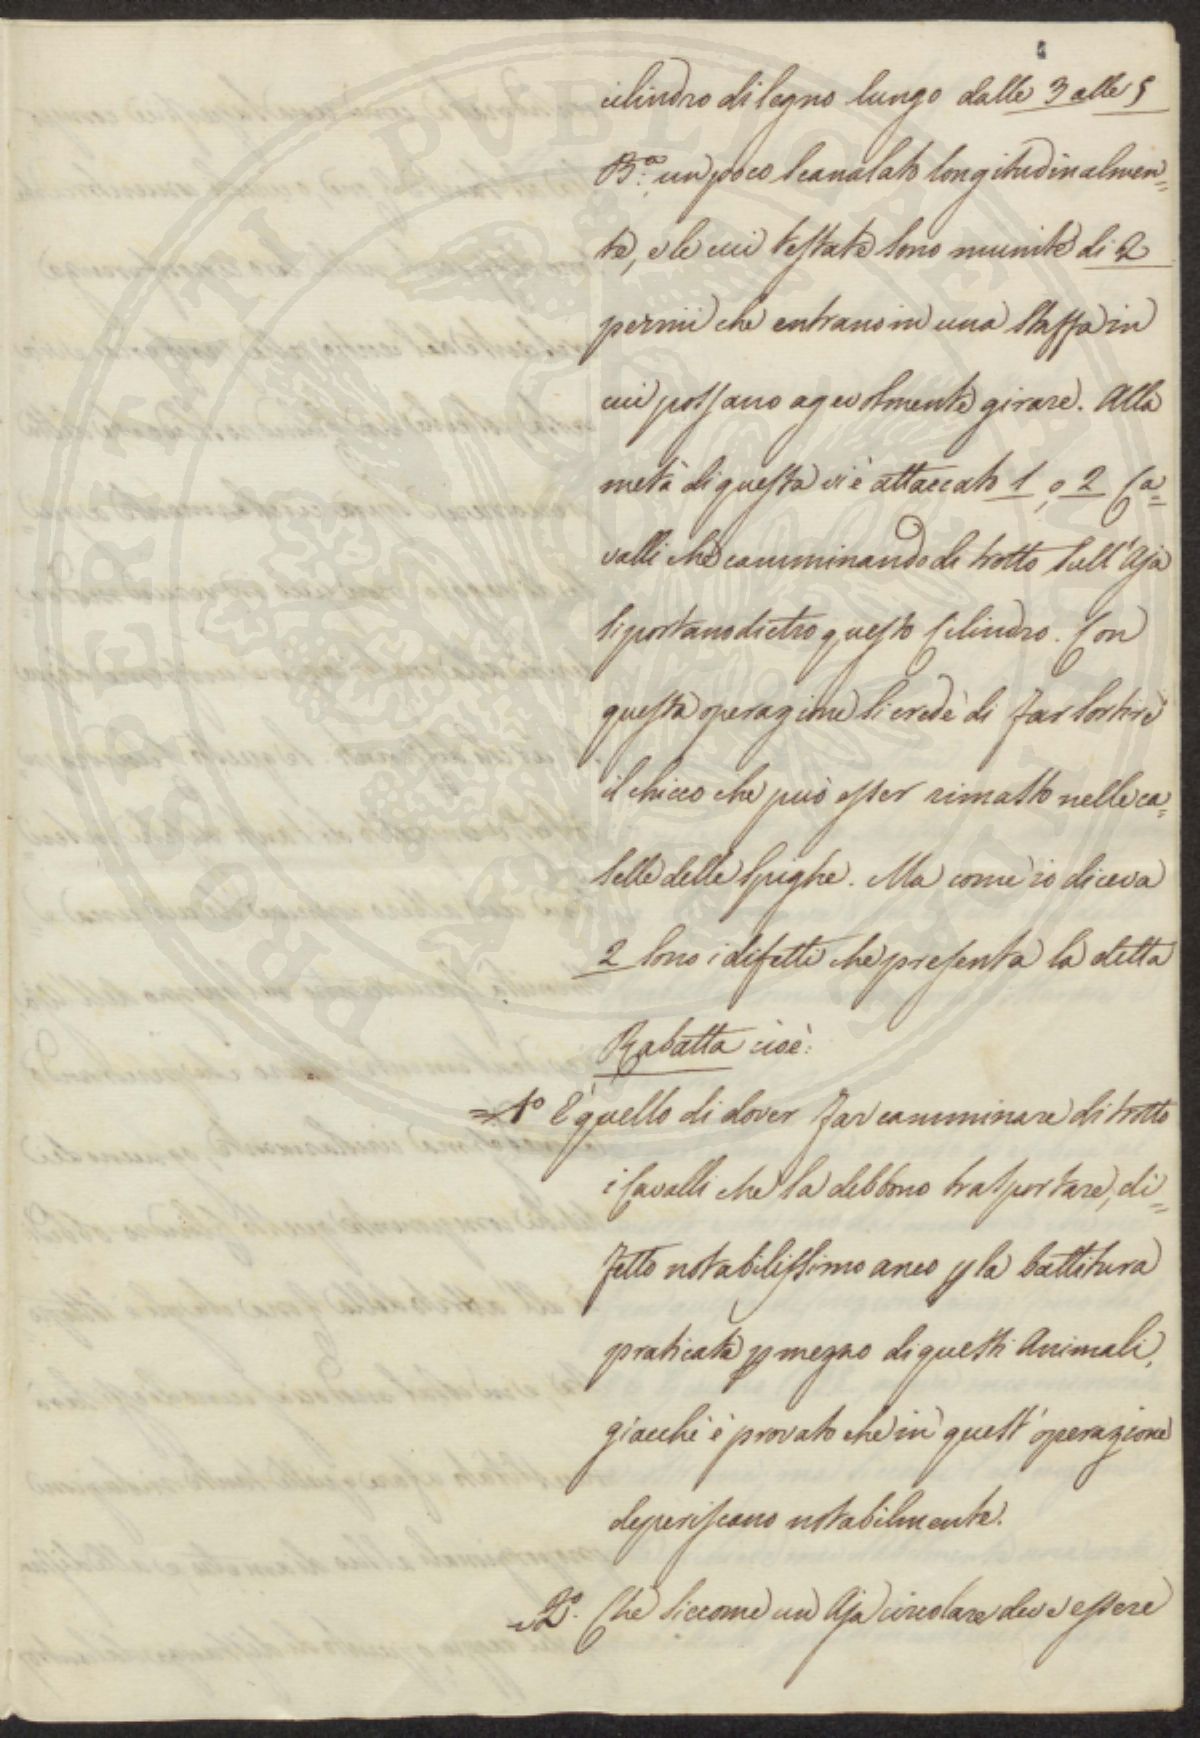 cilindro di legno lungo dalle 3 alle 5
B.ª un poco scanalato longitudinalmen=
te, e le cui testate sono munite di 2
pernii che entrano in una staffa in
cui possano agevolmente girare. Alla
metà di questa vi è attaccato 1, o 2 Ca=
valli che camminando di trotto sull'Aja
si portano dietro questo Cilindro. Con
questa operazione si crede di far sortire
il chicco che può esser rimasto nelle ca=
selle delle Spighe. Ma come io diceva
2 sono i difetti che presenta la detta
Rabatta cioè:
=1º E' quello di dover far camminare di trotto
i Cavalli che la debbono trasportare, di=
fetto notabilissimo anco p la battitura
praticata p mezzo di questi Animali,
giacchè è provato che in quest'operazione
deperiscano notabilmente.
=2º. Che siccome un Aja circolare deve essere
PROSPERITATI PUBLICAE AUGENDAE